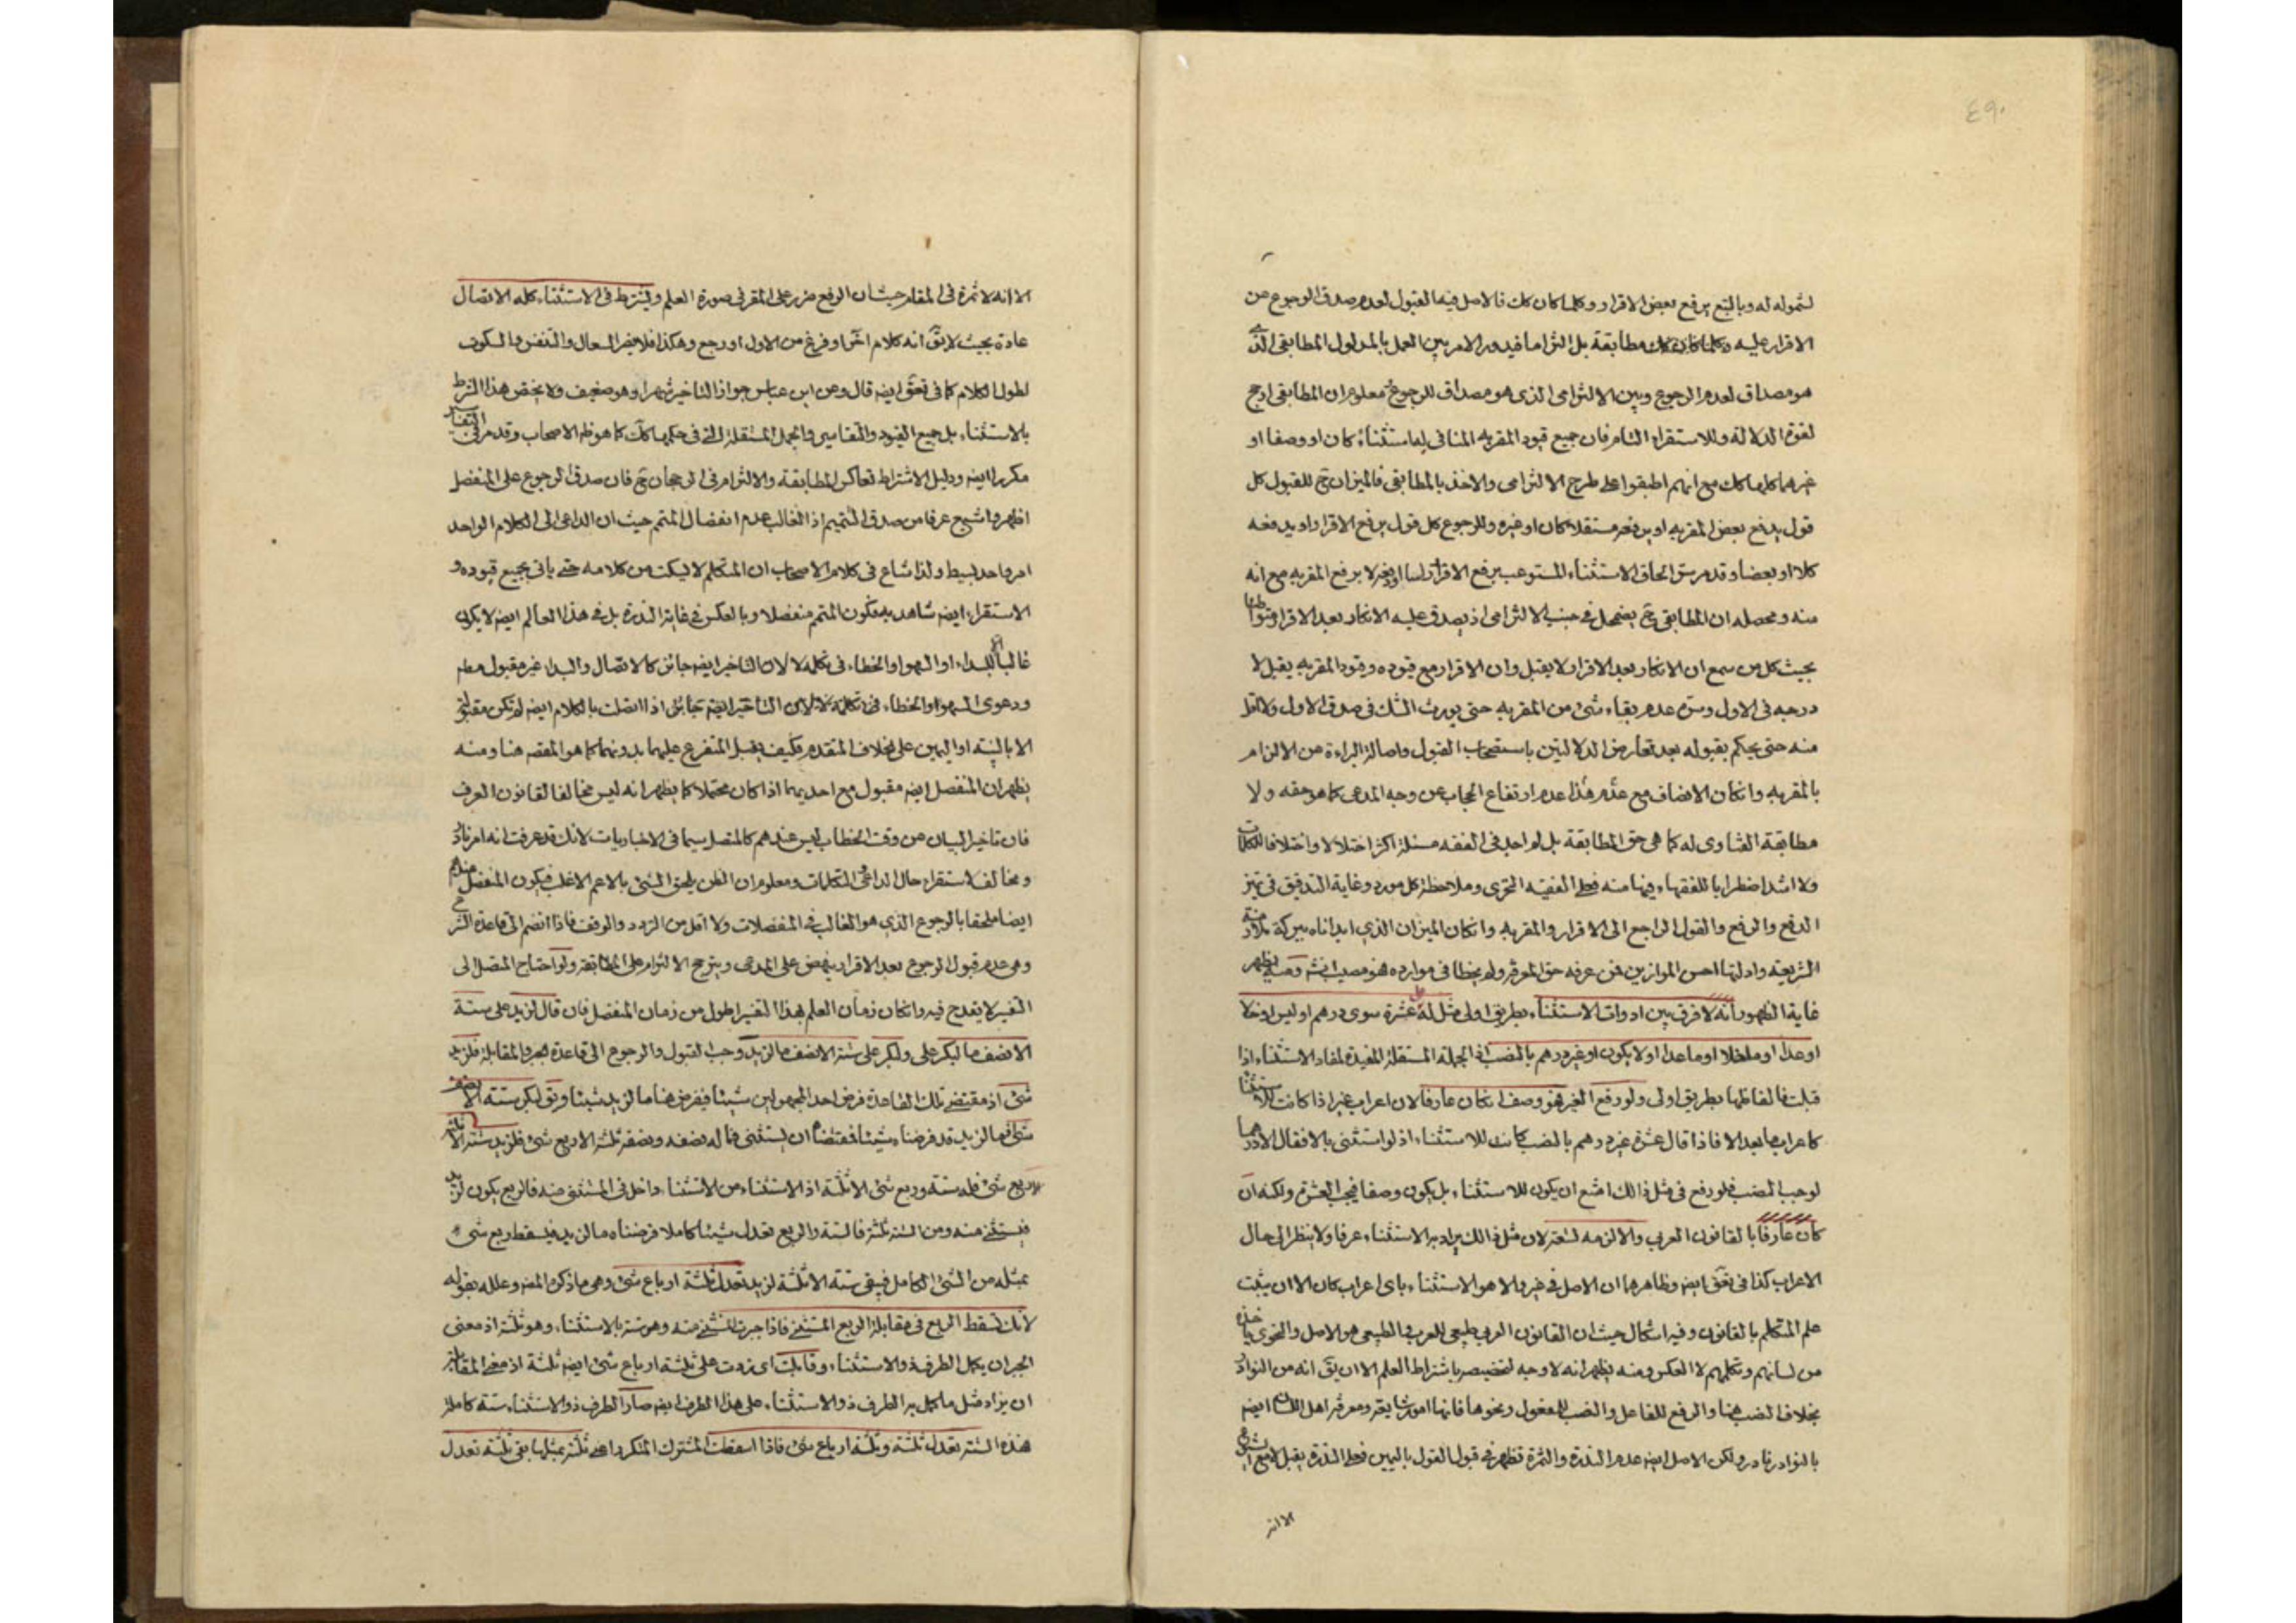 ٤٩٠
لشموله له وبالتبع يرفع بعض الاقرار وكلما كان كك فالاصل فيه القبول لعدم صدق الرجوع عن
الاقرار عليه مطابقة بل التزاما فيدور الامر بين العمل بالمدلول المطابقى الذى
هو مصداق لعدم الرجوع وبين الالتزامى الذى هو مصداق للرجوع معلوم ان المطابقى ارجح
لقوة الدلالة وللاستقراء التام فان جميع قيود المقر به المنافى استثناء كان او وصفا او
غيرهما كلها كك مع انهم اطبقوا على طرح الالتزامى والاخذ بالمطابقى فالميزان ح للقبول كل
قول يدفع بعض المقر به او يرفعه مستقلا كان او غيره وللرجوع كل قول يرفع الاقرار او يدفعه
كلا او بعضا وقد مر سر الحاق الاستثناء المستوعب برفع الاقرار لا برفع المقر به مع انه
منه ومحصله ان المطابقى ح يضمحل فى جنب الالتزامى اذ يصدق عليه الانكار بعد الاقرار
بحيث كل من سمع ان الانكار بعد الاقرار لا يقبل وان الاقرار مع قيوده وقيود المقر به يقبل لا
درجه فى الاول وسره عدم بقاء شىء من المقر به حتى يورث الشك فى صدق الاول ولا اقل
منه حتى يحكم بقبوله بعد تعارض الدلالتين باستصحاب القبول واصالة البراءة من الالزام
بالمقر به وان كان الانصاف مع هذا عدم ارتفاع الحجاب عن وجه المدعى كما هو حقه ولا
مطابقة الفتاوى له كما هى حق المطابقة بل لم اجد فى الفقه مسئلة اكثر اختلالا واختلافا للكلمات
ولا اشد اضطرابا للفقهاء فيها منه فعلى الفقيه التحرى وملاحظة كل مورد وغاية التدقيق فى تميز
الدفع والرفع والقول الراجع الى الاقرار والمقر به وان كان الميزان الذى ابدأناه ببركة
الشريعة وادلتها احسن الموازين فمن عرفه حق المعرفة ولم يخطا فى موارده فهو مصيب ومنه يظهر
غاية الظهور انه لا فرق بين ادوات الاستثناء بطريق اولى مثل له على عشرة سوى درهم او ليس او خلا
او عدا او ما خلا او ما عدا او لا يكون او غير درهم بالنصب الجملة المستقلة المفيدة لمفاد الاستثناء اذا
قبلت فالفاظها بطريق اولى ولو رفع الغير فهو وصف ان كان عارفا لان اعراب غير اذا كانت للاستثناء
كاعراب ما بعد الا فاذا قال عشرة غير درهم بالنصب كانت للاستثناء اذ لو استثنى بالا فقال الا درهما
لوجب النصب فلو رفع فى مثل ذلك امتنع ان يكون للاستثناء بل يكون وصفا فيجب العشرة ولكنه ان
كان عارفا بالقانون العربى والا لزمه تسعة لان مثل ذلك يراد به الاستثناء عرفا ولا ينظر الى حال
الاعراب كذا فى تعق ايضه وظاهرهما ان الاصل فى غير والا هو الاستثناء باى اعراب كان الا ان يثبت
علم المتكلم بالقانون وفيه اشكال حيث ان القانون العربى طبيعى للعرب والطبيعى هو الاصل والنحوى
من لسانهم وتكلمهم لا العكس ومنه يظهر انه لا وجه لتخصيصه باشتراط العلم الا ان يق انه من النوادر
بخلاف النصب هنا والرفع للفاعل والنصب للمفعول ونحوها فانها امور شايعة ومعرفة اهل اللسان ايضه
بالنوادر نادر ولكن الاصل ايضه عدم الندرة والثمرة تظهر فى قبول القول باليمين فعلى الندرة يقبل
الا انه
الا انه لا ثمرة فى المقام حيث ان الرفع ضرر على المقر فى صورة العلم ويشترط فى الاستثناء كله الاتصال
عادة بحيث لا يق انه كلام اخر او فرغ من الاول او رجع وهكذا فلا يضر السعال والتنفس والسكوت
لطول الكلام كما فى تعق ايضه قال وعن ابن عباس جواز التاخير شهرا وهو ضعيف ولا يختص هذا الشرط
بالاستثناء بل جميع القيود والتفاسير والجمل المستقلة التى فى حكمها كك كما هو ظم الاصحاب وقد مر فى التفاسير
مكررا ايضه ودليل الاشتراط تعاكس المطابقة والالتزام فى الرجحان ح فان صدق الرجوع على المنفصل
اظهر واشيع عرفا من صدق التتميم اذ الغالب عدم انفصال المتمم حيث ان الداعى الى الكلام الواحد
امر واحد بسيط ولذا شاع فى كلام الاصحاب ان المتكلم لا يسكت من كلامه حتى ياتى بجميع قيوده و
الاستقراء ايضه شاهد به فكون المتمم منفصلا وبالعكس فى غاية الندرة بل فى هذا العالم ايضه لا يكون
غالبا الا للبداء او السهو او الخطاء فى تكلمه لا لان التاخير ايضه جائز كالاتصال والبداء غير مقبول مطم
ودعوى السهو او الخطاء اذا اتصلت بالكلام ايضه لم تكن مقبولة
الا بالبينة او اليمين على الخلاف المتقدم فكيف يقبل المتفرع عليهما بدونهما كما هو المقصد هنا ومنه
يظهر ان المنفصل ايضه مقبول مع احديهما اذا كان محتملا كما يظهر انه ليس مخالفا لقانون العرف
فان تاخير البيان عن وقت الخطاب ليس عندهم كالمتصل سيما فى الاخباريات لانك قد عرفت انه امر نادر
ومخالف استقراء حال الداعى التكلمات ومعلوم ان الظن يلحق الشىء بالاعم الاغلب فيكون المنفصل عندهم
ايضا ملحقا بالرجوع الذى هو الغالب فى المنفصلات ولا اقل من التردد والوقف فاذا انضم الى قاعدة الشرع
وهى عدم قبول الرجوع بعد الاقرار ينهض على المدعى ويترجح الالتزام على المطابقة ولو احتاج المتصل الى
التفسير لا يقدح فيه وان كان زمان العلم بهذا التفسير اطول من زمان المنفصل فان قال لزيد على ستة
الا نصف ما لبكر على ولبكر على ستة الا نصف ما لزيد وجب القبول والرجوع الى قاعدة الجبر والمقابلة فلزيد
شىء اذ مقتضى تلك القاعدة فرض احد المجهولين شيئا فيفرض هنا ما لزيد شيئا ويق لبكر ستة الا نصف
شىء فما لزيد قد فرضناه شيئا فمقتضاه ان يستثنى ما له نصفه ونصفه ثلثة الا ربع شىء فلزيد ستة الا ثلثة
الا ربع شىء فله ستة وربع شىء الا ثلثة اذ الاستثناء من الاستثناء داخل فى المستثنى منه فالربع يكون لزيد
فيستثنى منه ومن الستة ثلثة فالستة والربع تعدل شيئا كاملا فرضناه ما لزيد فيسقط ربع شىء
بمثله من الشىء الكامل فيبقى ستة الا ثلثة لزيد تعدل ثلثة ارباع شىء وهى ما ذكره المصنف وعلله بقوله
لانك تسقط الربع فى مقابلة الربع المستثنى فاذا جبرت المستثنى منه وهو ستة بالاستثناء وهو ثلثة اذ معنى
الجبر ان يكمل الطرف ذو الاستثناء وقابلت اى زدت على ثلثة ارباع شىء ايضه ثلثة اذ معنى المقابلة
ان يزاد مثل ما كمل به الطرف ذو الاستثناء على هذا الطرف ايضه صار الطرف ذو الاستثناء ستة كاملة
فهذه الستة تعدل ثلثة وثلثة ارباع شىء فاذا اسقطت المشترك المتكرر اعنى ثلثة بمثلها بقى ثلثة تعدل